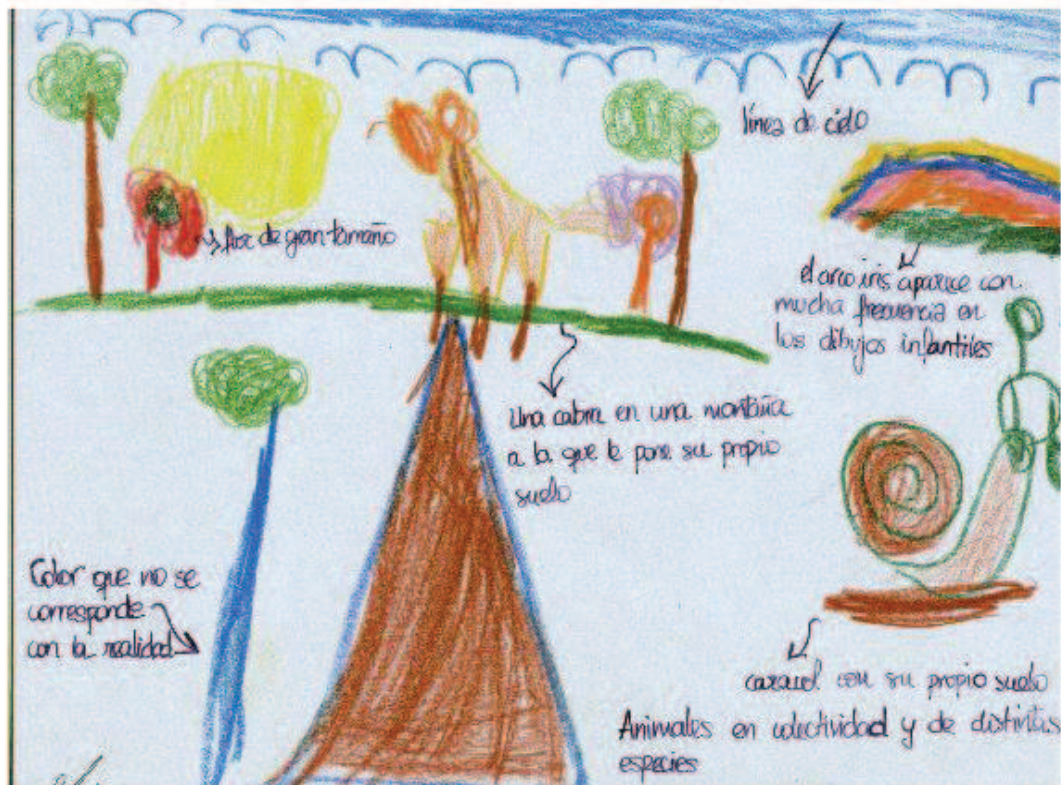 línea de cielo
flor de gran tamaño
el arco iris aparece con
mucha frecuencia en
los dibujos infantiles
Una cabra en una montaña
a la que le pone su propio
suelo
Color que no se
corresponde
con la realidad
caracol con su propio suelo
Animales en colectividad y de distintas
especies